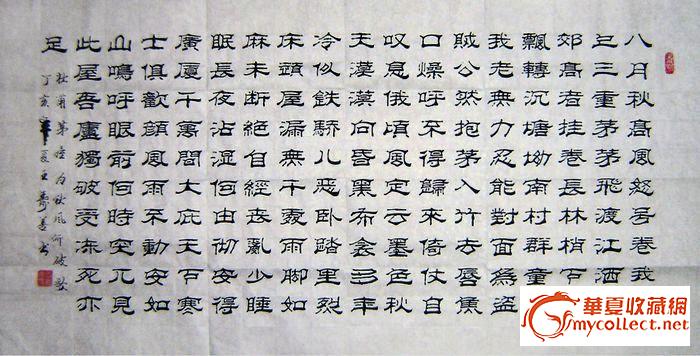 八月秋高風怒号卷我
上三重茅茅飛渡江洒
郊高者挂卷長林梢下
飄轉沉塘坳南村群童
我老無力忍能對面爲盜
賊公然抱茅入竹去唇焦
口燥呼不得歸來倚仗自
叹息俄頃風定云墨色秋
天漠漠向昏黑布衾多年
冷似鉄驕儿惡卧踏里裂
床頭屋漏無干處雨脚如
麻未斷絕自經喪亂少睡
眠長夜沾湿何由彻安得
廣厦千萬間大庇天下寒
士俱歡顏風雨不動安如
山嗚呼眼前何時突兀見
此屋吾廬獨破受冻死亦
足
杜甫茅屋为秋风所破歌
丁亥年夏王
華夏收藏網
mycollect.net